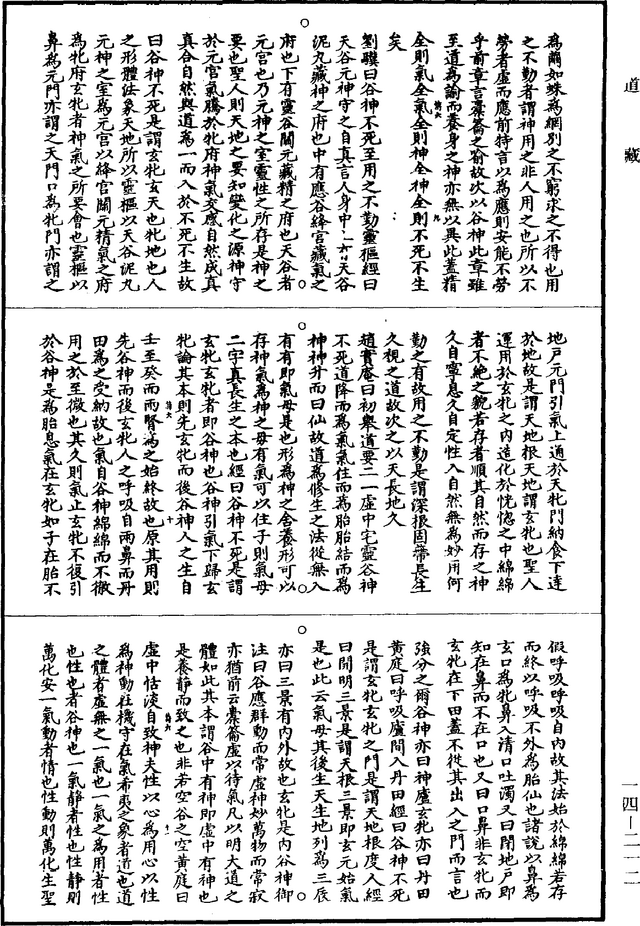 道藏
為爾如蛛為網別之不窮求之不得也用
之不勤者謂神用之非人用之也所以不
勞者虛而應前特言以為應則安能不勞
乎前章言橐籥之喻故次以谷神此章雖
至道為諭而養身之神亦無以異此蓋精
全則氣全氣全則神全神全則不死不生
矣
劉驥曰谷神不死至用之不勤靈樞經曰
天谷元神守之自真言人身中上有天谷
泥丸藏神之府也中有應谷絳宮藏氣之
府也下有靈谷關元藏精之府也天谷者
元宮也乃元神之室靈性之所存是神之
要也聖人則天地之要知變化之源神守
於元宮氣騰於牝府神氣交感自然成真
真合自然與道為一而入於不死不生故
曰谷神不死是謂玄牝玄天也牝地也人
之形體法象天地所以靈樞以天谷泥丸
元神之室為元宮以絳宮關元精氣之府
為牝府玄牝者神氣之所要會也靈樞以
鼻為元門亦謂之天門口為牝門亦謂之
地戶元門引氣上通於天牝門納食下達
於地故是謂天地根天地謂玄牝也聖人
運用於玄牝之內造化於恍惚之中綿綿
者不絕之貌若存者順其自然而存之神
久自寧息久自定性入自然無為妙用何
勤之有故用之不勤是謂深根固蔕長生
久視之道故次之以天長地久
趙實庵曰初舉道要二一虛中宅靈谷神
不死道降而為氣氣住而為胎胎結而為
神神升而曰仙故道為修生之法從無入
有有即氣母是也形為神之舍養形可以
存神氣為神之母有氣可以住子則氣母
二字真長生之本也經曰谷神不死是謂
玄牝玄牝者即谷神也谷神引氣下歸玄
牝論其本則先玄牝而後谷神人之生自
壬至癸而兩腎為之始終故也原其用則
先谷神而後玄牝人之呼吸自兩鼻而丹
田為之受納故也氣自谷神綿綿而不微
用之於至微也其久則氣止玄牝不復引
於谷神是為胎息氣在玄牝如子在胎不
假呼吸呼吸自內故其法始於綿綿若存
而終以呼吸不外為胎仙也諸說以鼻為
玄口為牝鼻入清口吐濁又曰閉地戶即
知在鼻而不在口也又曰口鼻非玄牝而
玄牝在下田蓋不從其出入之門而言也
強分之爾谷神亦曰神廬玄牝亦曰丹田
黃庭曰呼吸廬間入丹田經曰谷神不死
是謂玄牝玄牝之門是謂天地根度人經
曰開明三景是謂天根三景即玄元始氣
是也此云氣母其後生天生地列為三辰
亦曰三景有內外故也玄牝是內谷神御
注曰谷應群動而常虛神妙萬物而常寂
亦猶前云橐籥虛以待氣凡以明大道之
體如此其本謂谷中有神即虛中有神也
是養靜而致之也非若空谷之空黃庭曰
虛中恬淡自致神夫性以心為用心以性
為神動往機守在氣希夷之象者道也道
之體者虛無之一氣也一氣之為用者性
也性也者谷神也一氣靜者性也性靜則
萬化安一氣動者情也性動則萬化生聖
一四—二一二